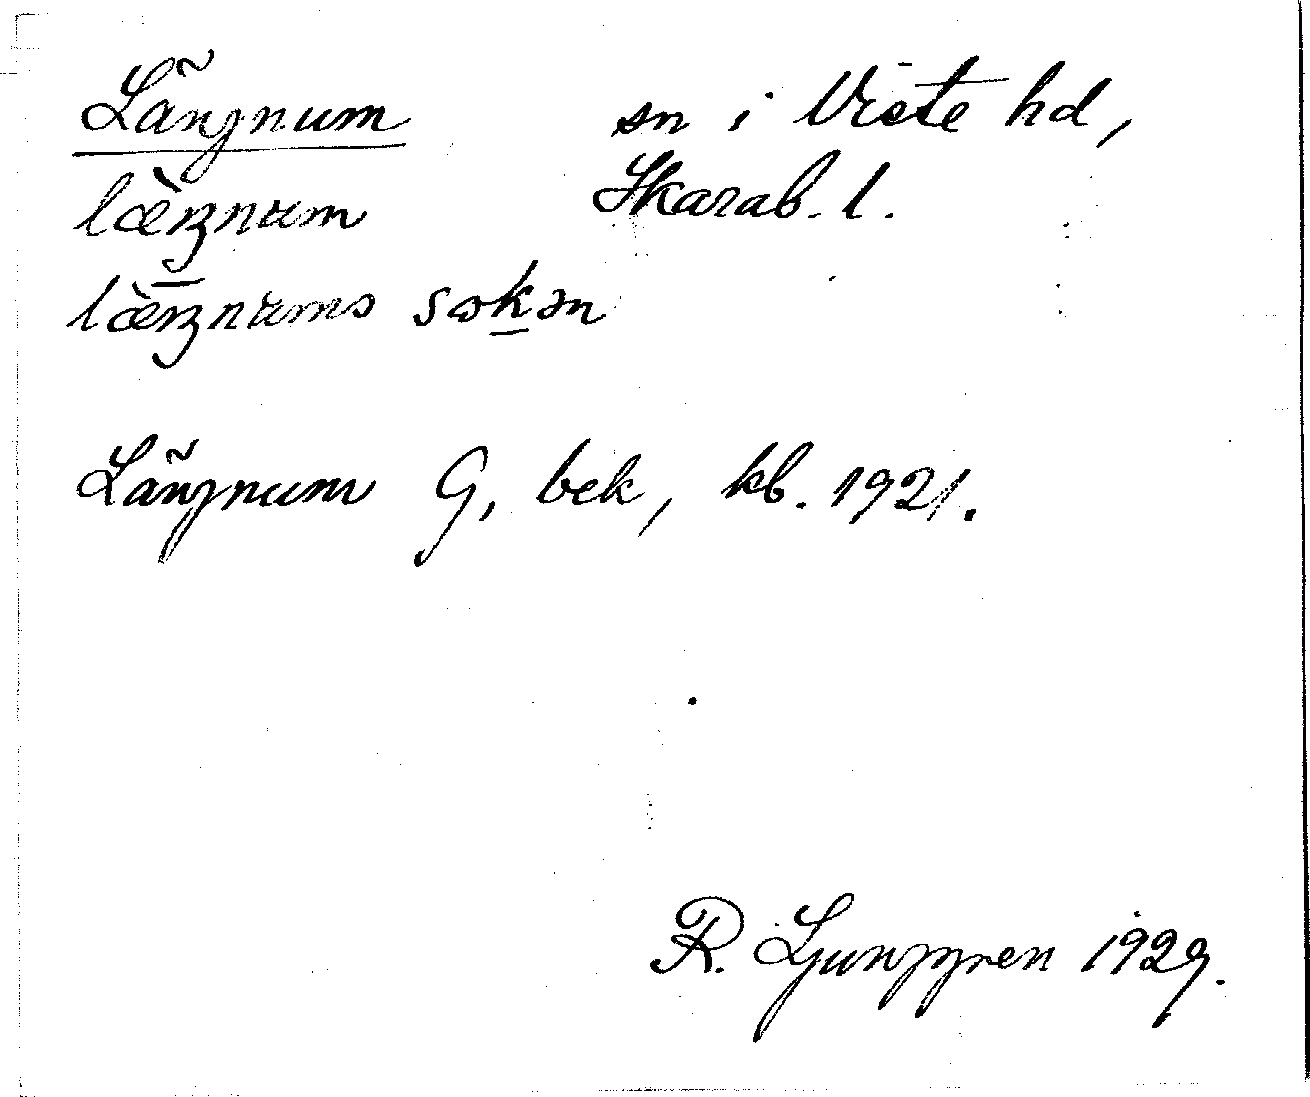 Längnum sn i Viste hd,
Skarab. l.
lὰŋnum
lὰŋnums sokən
Längnum G, bek, kb. 1921.
R. Ljunggren 1929.